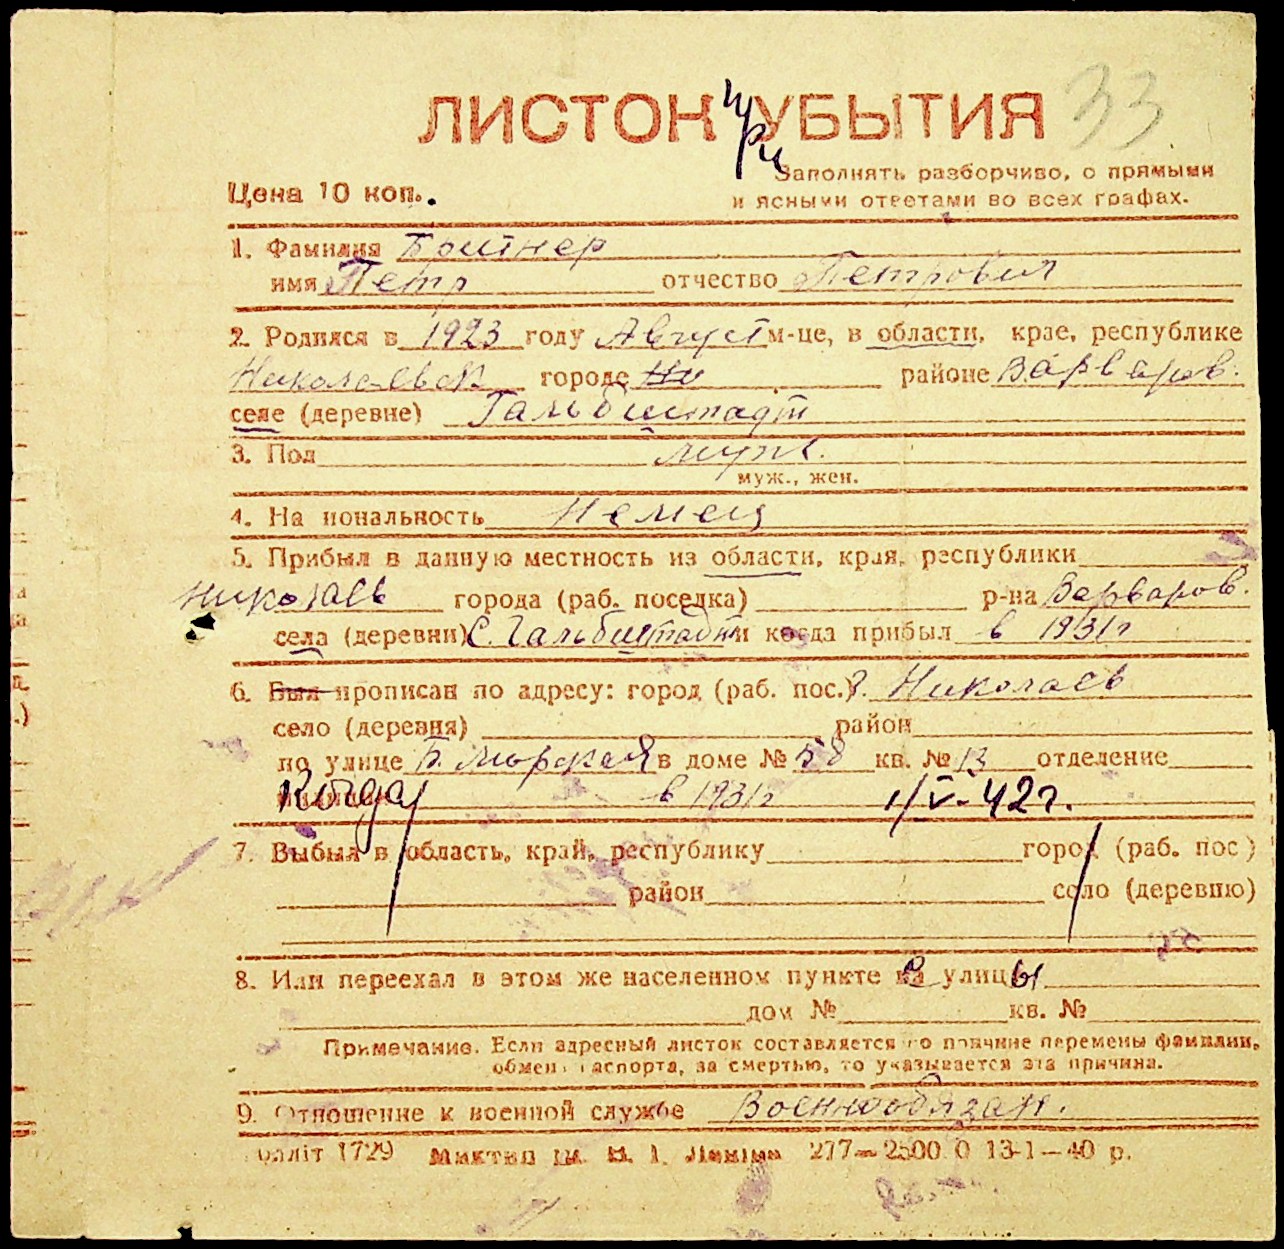 33
ЛИСТОК УБЫТИЯ
при
Цена 10 коп.
Заполнять разборчиво, с прямыми
и ясными ответами во всех графах.
1. Фамилия Бритнер
имя Петр отчество Петрович
2. Родился в 1923 году Август м-це, в области, крае, республике
Николаевск городе Ни районе Варваров.
селе (деревне) Гальбштадт
3. Пол муж.
муж., жен.
4. На иональность Немец
5. Прибыл в данную местность из области, края, республики
Николаев города (раб. поселка) р-на Варваров.
села (деревни) С. Гальбштадт и когда прибыл в 1931г
6. Был прописан по адресу: город (раб. пос.) г. Николаев
село (деревня) район
по улице Б. Морская в доме № 58 кв. № 13 отделение
Когда в 1931г 1/V-42г.
7. Выбыл в область, край, республику город (раб. пос )
район село (деревню)
8. Или переехал в этом же населенном пункте с улицы
дом № кв. №
Примечание. Если адресный листок составляется по причине перемены фамилии,
обмен паспорта, за смертью, то указывается эта причина.
9. Отношение к военной службе Военнообязан.
олліт 1729 277—2500 0 13-1—40 р.